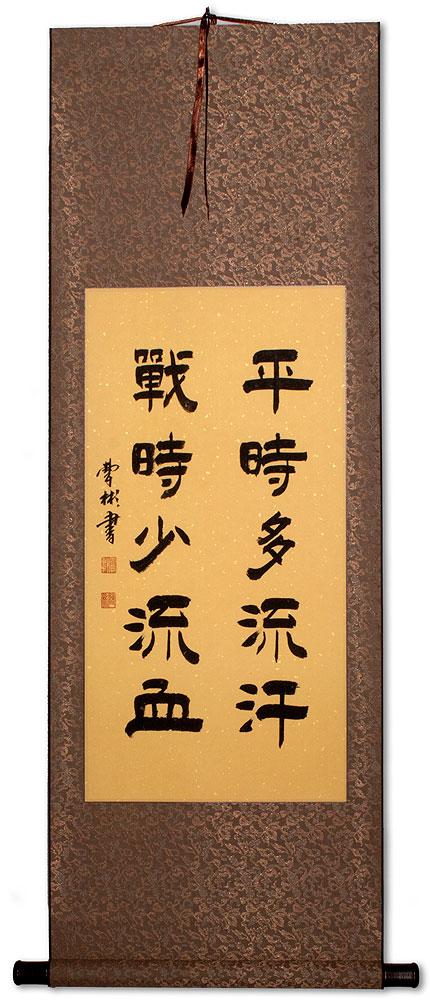 平時多流汗
戰時少流血
費彬書